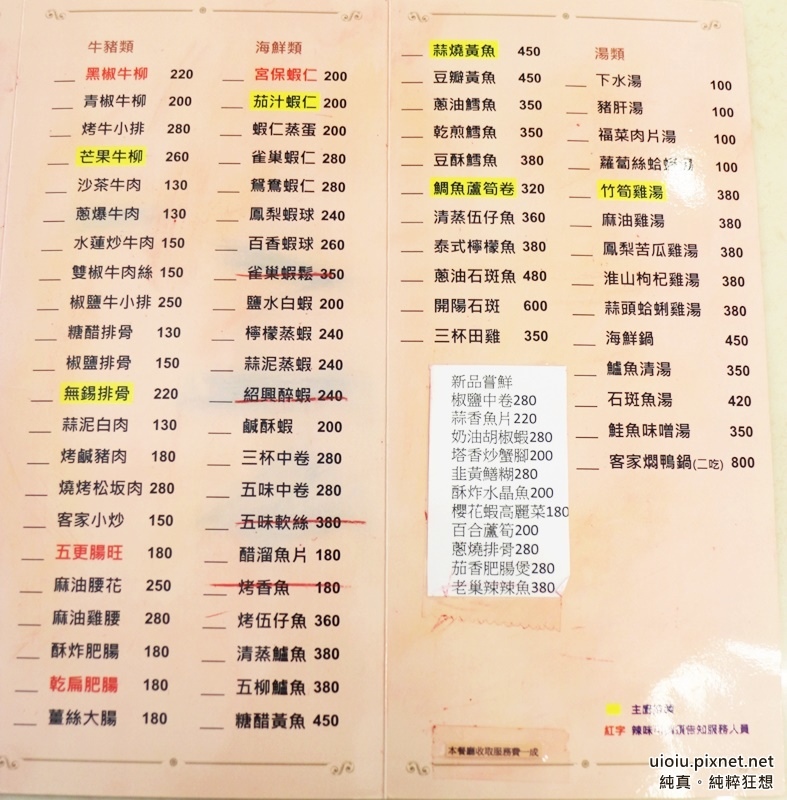 牛豬類
黑椒牛柳 220
青椒牛柳 200
烤牛小排 280
芒果牛柳 260
沙茶牛肉 130
蔥爆牛肉 130
水蓮炒牛肉 150
雙椒牛肉絲 150
椒鹽牛小排 250
糖醋排骨 130
椒鹽排骨 150
無錫排骨 220
蒜泥白肉 130
烤鹹豬肉 180
燒烤松坂肉 280
客家小炒 150
五更腸旺 180
麻油腰花 250
麻油雞腰 280
酥炸肥腸 180
乾扁肥腸 180
薑絲大腸 180
海鮮類
宮保蝦仁 200
茄汁蝦仁 200
蝦仁蒸蛋 200
雀巢蝦仁 280
鴛鴦蝦仁 280
鳳梨蝦球 240
百香蝦球 260
雀巢蝦鬆 350
鹽水白蝦 200
檸檬蒸蝦 240
蒜泥蒸蝦 240
紹興醉蝦 240
鹹酥蝦 200
三杯中卷 280
五味中卷 280
五味軟絲 380
醋溜魚片 180
烤香魚 180
烤伍仔魚 360
清蒸鱸魚 380
五柳鱸魚 380
糖醋黃魚 450
蒜燒黃魚 450
豆瓣黃魚 450
蔥油鱈魚 350
乾煎鱈魚 350
豆酥鱈魚 380
鯛魚蘆筍卷 320
清蒸伍仔魚 360
泰式檸檬魚 380
蔥油石斑魚 480
開陽石斑 600
三杯田雞 350
新品嘗鮮
椒鹽中卷280
蒜香魚片220
奶油胡椒蝦280
塔香炒蟹腳200
韭黃鱔糊280
酥炸水晶魚200
櫻花蝦高麗菜180
百合蘆筍200
蔥燒排骨280
茄香肥腸煲280
老巢辣辣魚380
本餐廳收取服務費一成
湯類
下水湯 100
豬肝湯 100
福菜肉片湯 100
蘿蔔絲蛤 100
竹筍雞湯 380
麻油雞湯 380
鳳梨苦瓜雞湯 380
淮山枸杞雞湯 380
蒜頭蛤蜊雞湯 380
海鮮鍋 450
鱸魚清湯 350
石斑魚湯 420
鮭魚味噌湯 350
客家燜鴨鍋(二吃) 800
主廚
紅字 辣味 告知服務人員
uioiu.pixnet.net
純真。純粹狂想